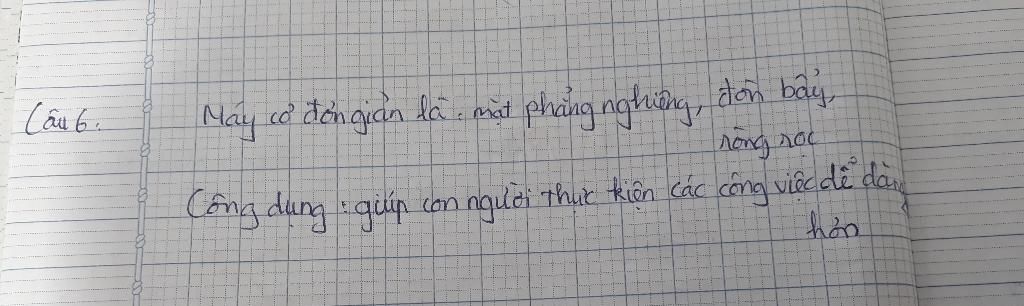 Câu 6: Máy cơ đơn giản là: mặt phẳng nghiêng, đòn bẩy,
ròng rọc
Công dụng: giúp con người thực hiện các công việc dễ dàng
hơn